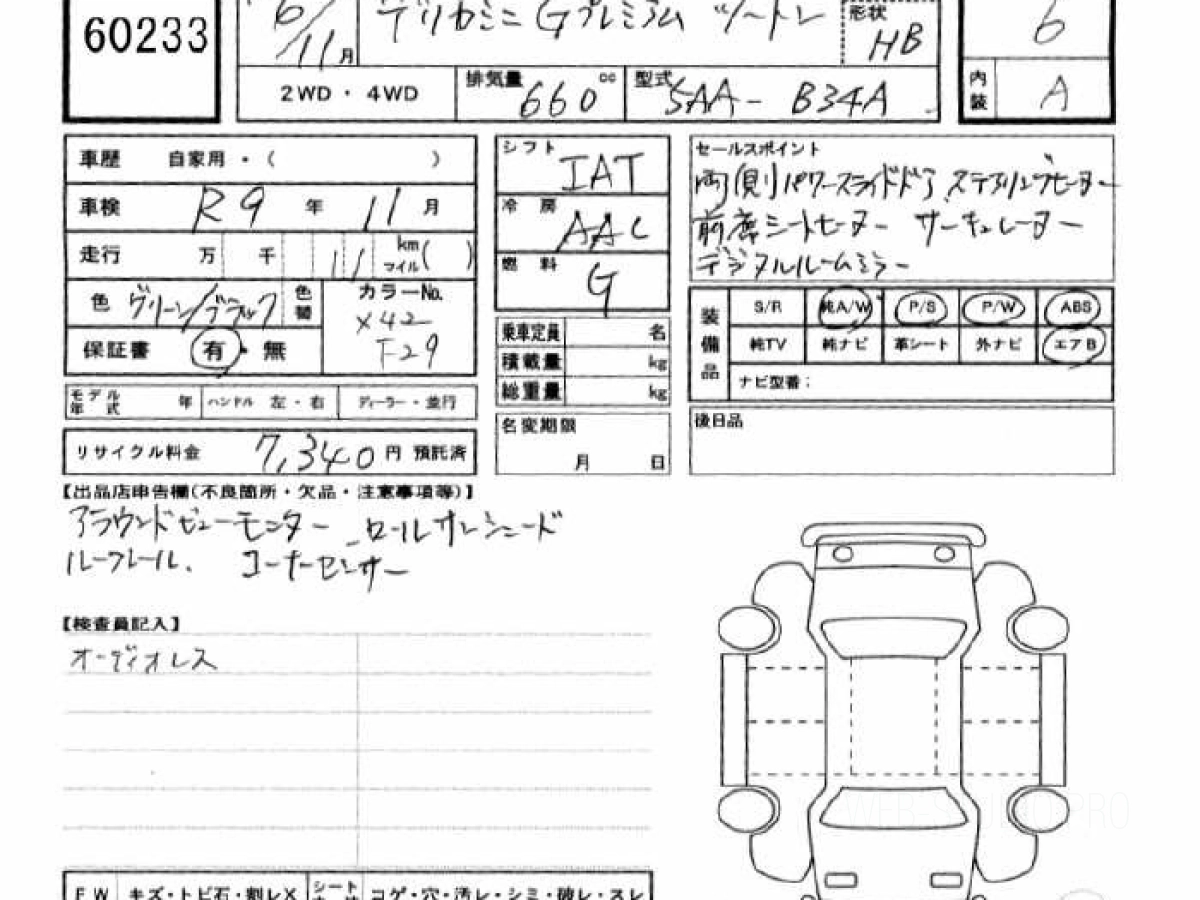 60233
6/11月
デリカミニ Gプレミアム ツートン
形状 HB
6
2WD・4WD
排気量 660 cc
型式 5AA- B34A
内装 A
車歴 自家用・( )
車検 R9年 11月
走行 万 千 11 km マイル( )
色 グリーン/ブラック 色替
カラーNo. X42 F29
保証書 有・無
モデル年式 年 ハンドル 左・右 ディーラー・並行
リサイクル料金 7,340円 預託済
シフト IAT
冷房 AAC
燃料 G
乗車定員 名
積載量 kg
総重量 kg
名変期限
月 日
セールスポイント
両側パワースライドドア ステアリングヒーター
前席シートヒーター サーキュレーター
デジタルルームミラー
装備品
S/R 純A/W P/S P/W ABS
純TV 純ナビ 革シート 外ナビ エアB
ナビ型番:
後日品
【出品店申告欄(不良箇所・欠品・注意事項等)】
アラウンドビューモニター ロールサンシェード
ルーフレール、 コーナーセンサー
【検査員記入】
オーディオレス
FW キズ・トビ石・割レX シート コゲ・穴・汚レ・シミ・破レ・スレ